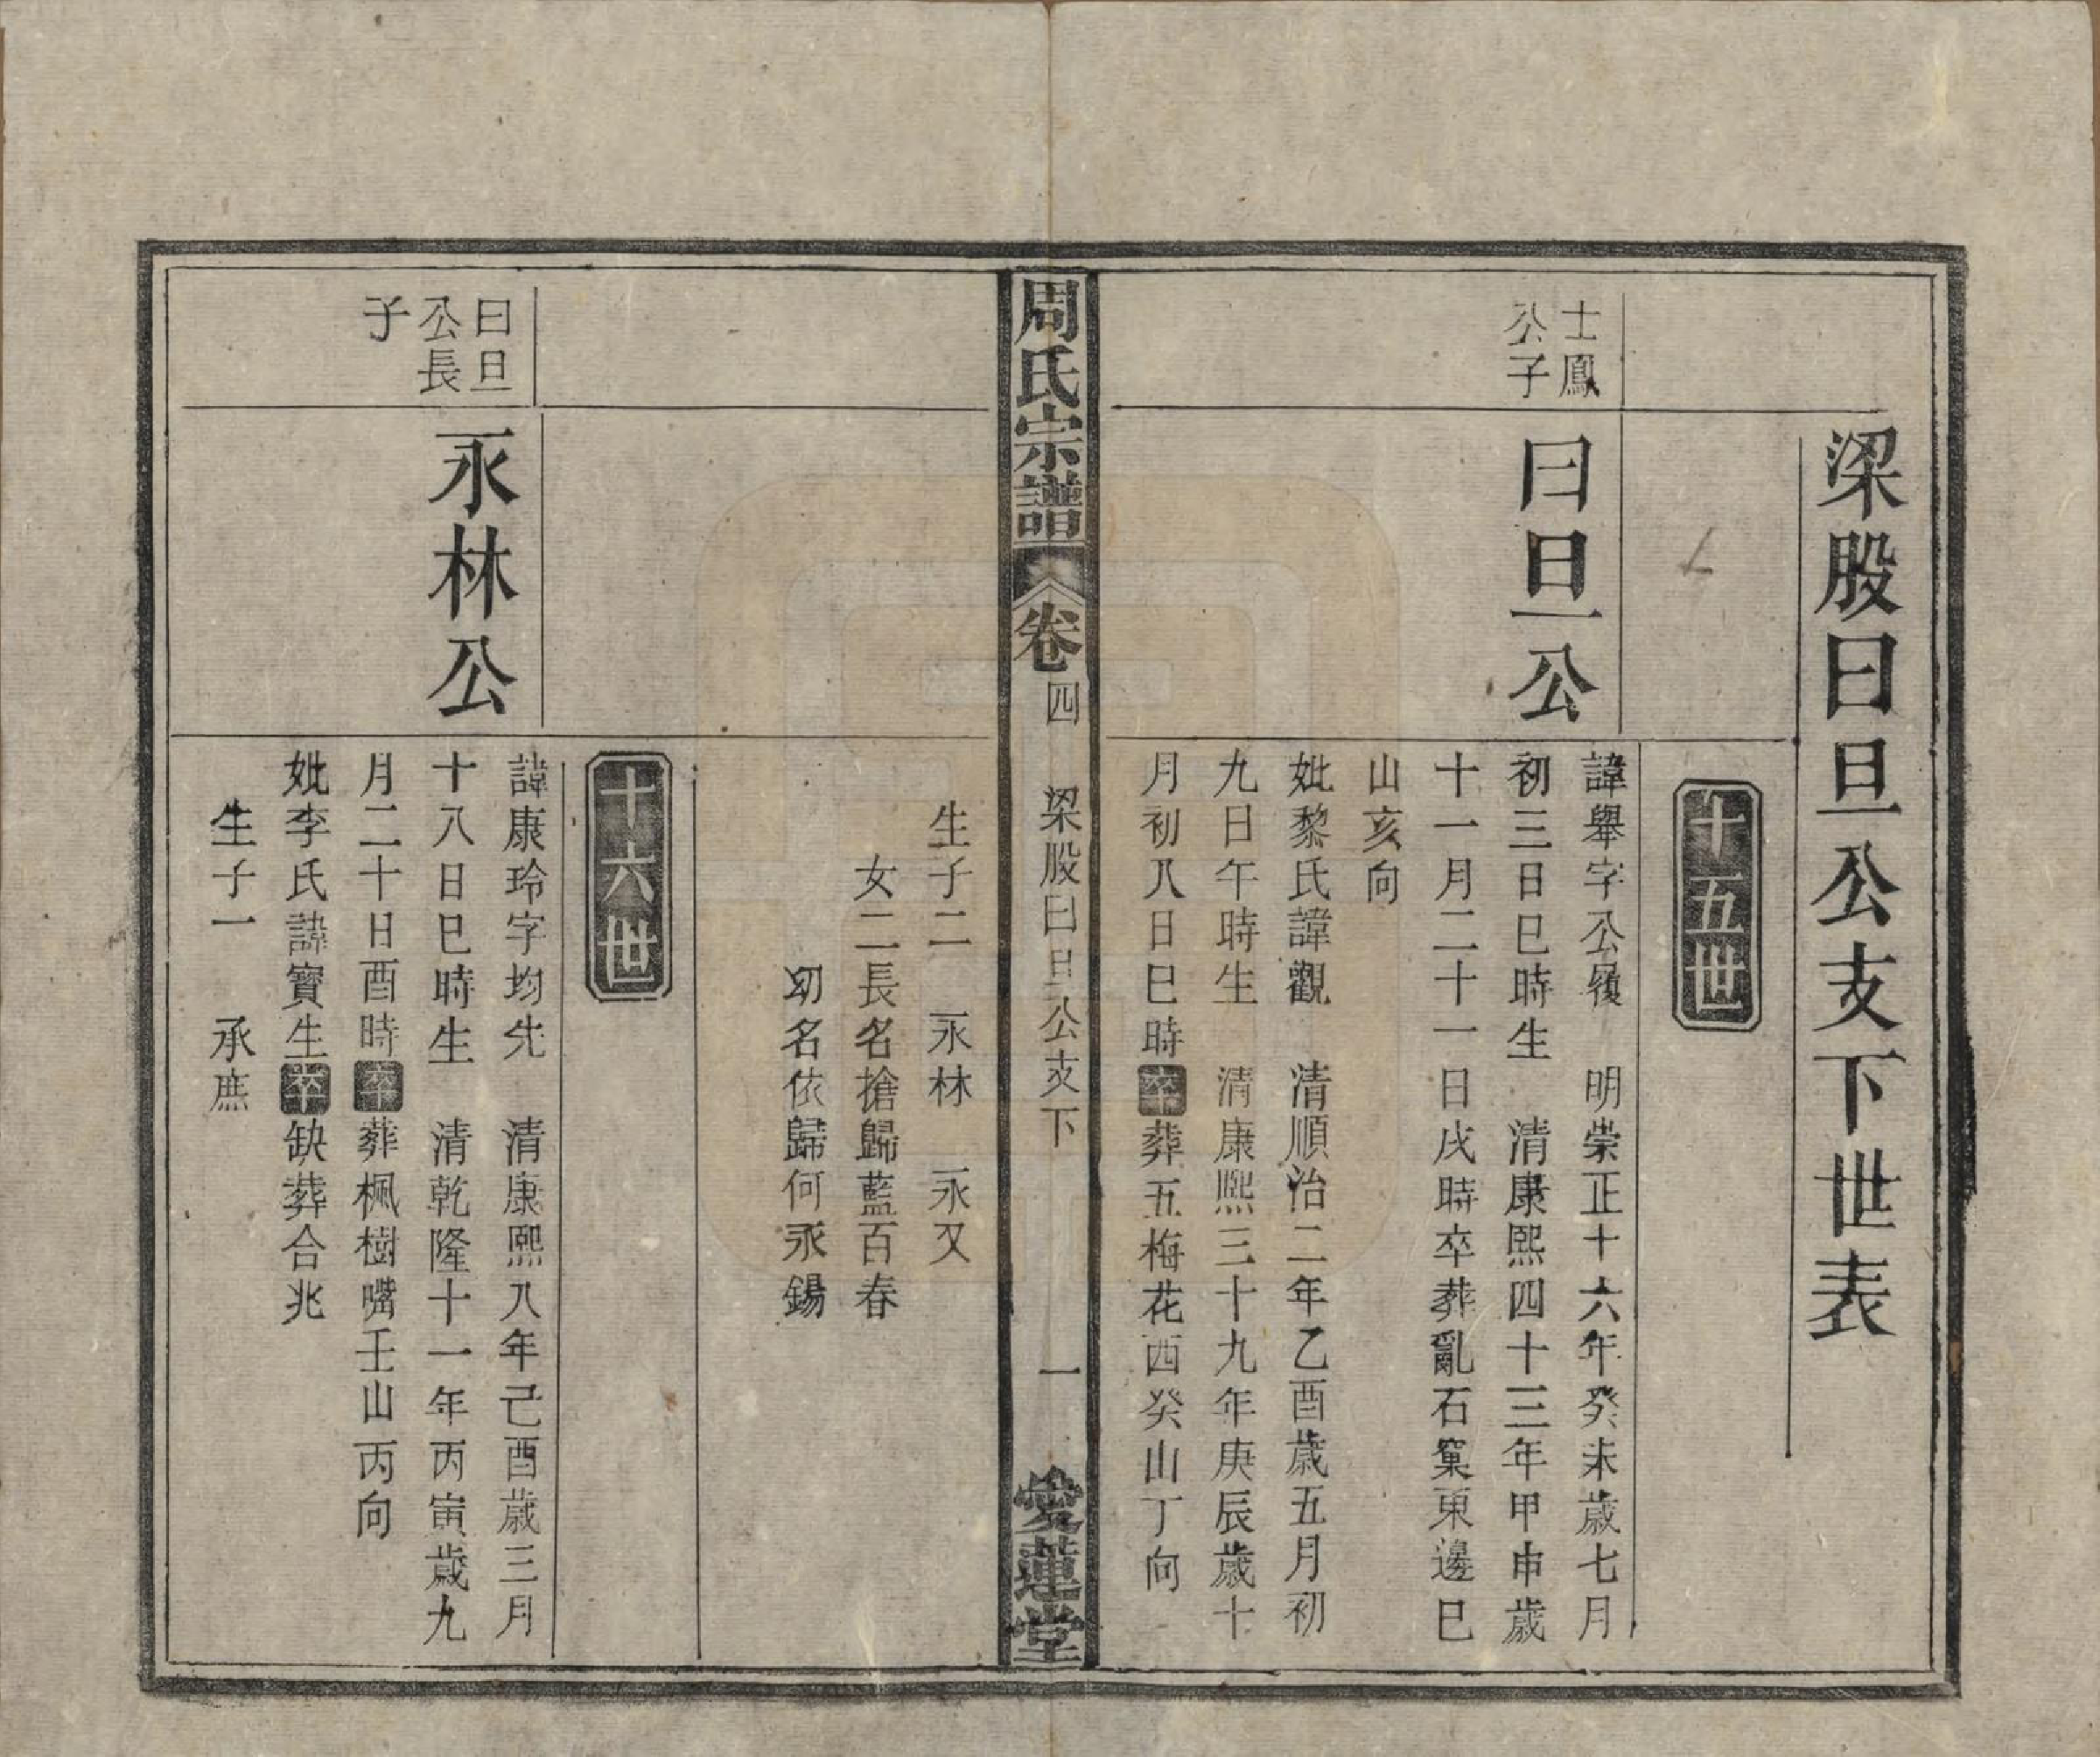 梁股曰旦公支下世表
十五世
士鳳
公子
曰旦公
諱舉字公履　明崇正十六年癸未歲七月
初三日巳時生　清康熙四十三年甲申歲
十一月二十一日戌時卒葬亂石窠東邊巳
山亥向
妣黎氏諱觀　清順治二年乙酉歲五月初
九日午時生　清康熙三十九年庚辰歲十
月初八日巳時卒葬五梅花西癸山丁向
周氏宗譜　卷四　梁股曰旦公支下　一　愛蓮堂
生子二　永林　永又
女二長名搶歸藍百春
幼名依歸何永錫
十六世
曰旦
公長
子
永林公
諱康玲字均先　清康熙八年己酉歲三月
十八日巳時生　清乾隆十一年丙寅歲九
月二十日酉時卒葬楓樹嘴壬山丙向
妣李氏諱寶生卒缺葬合兆
生子一　承庶